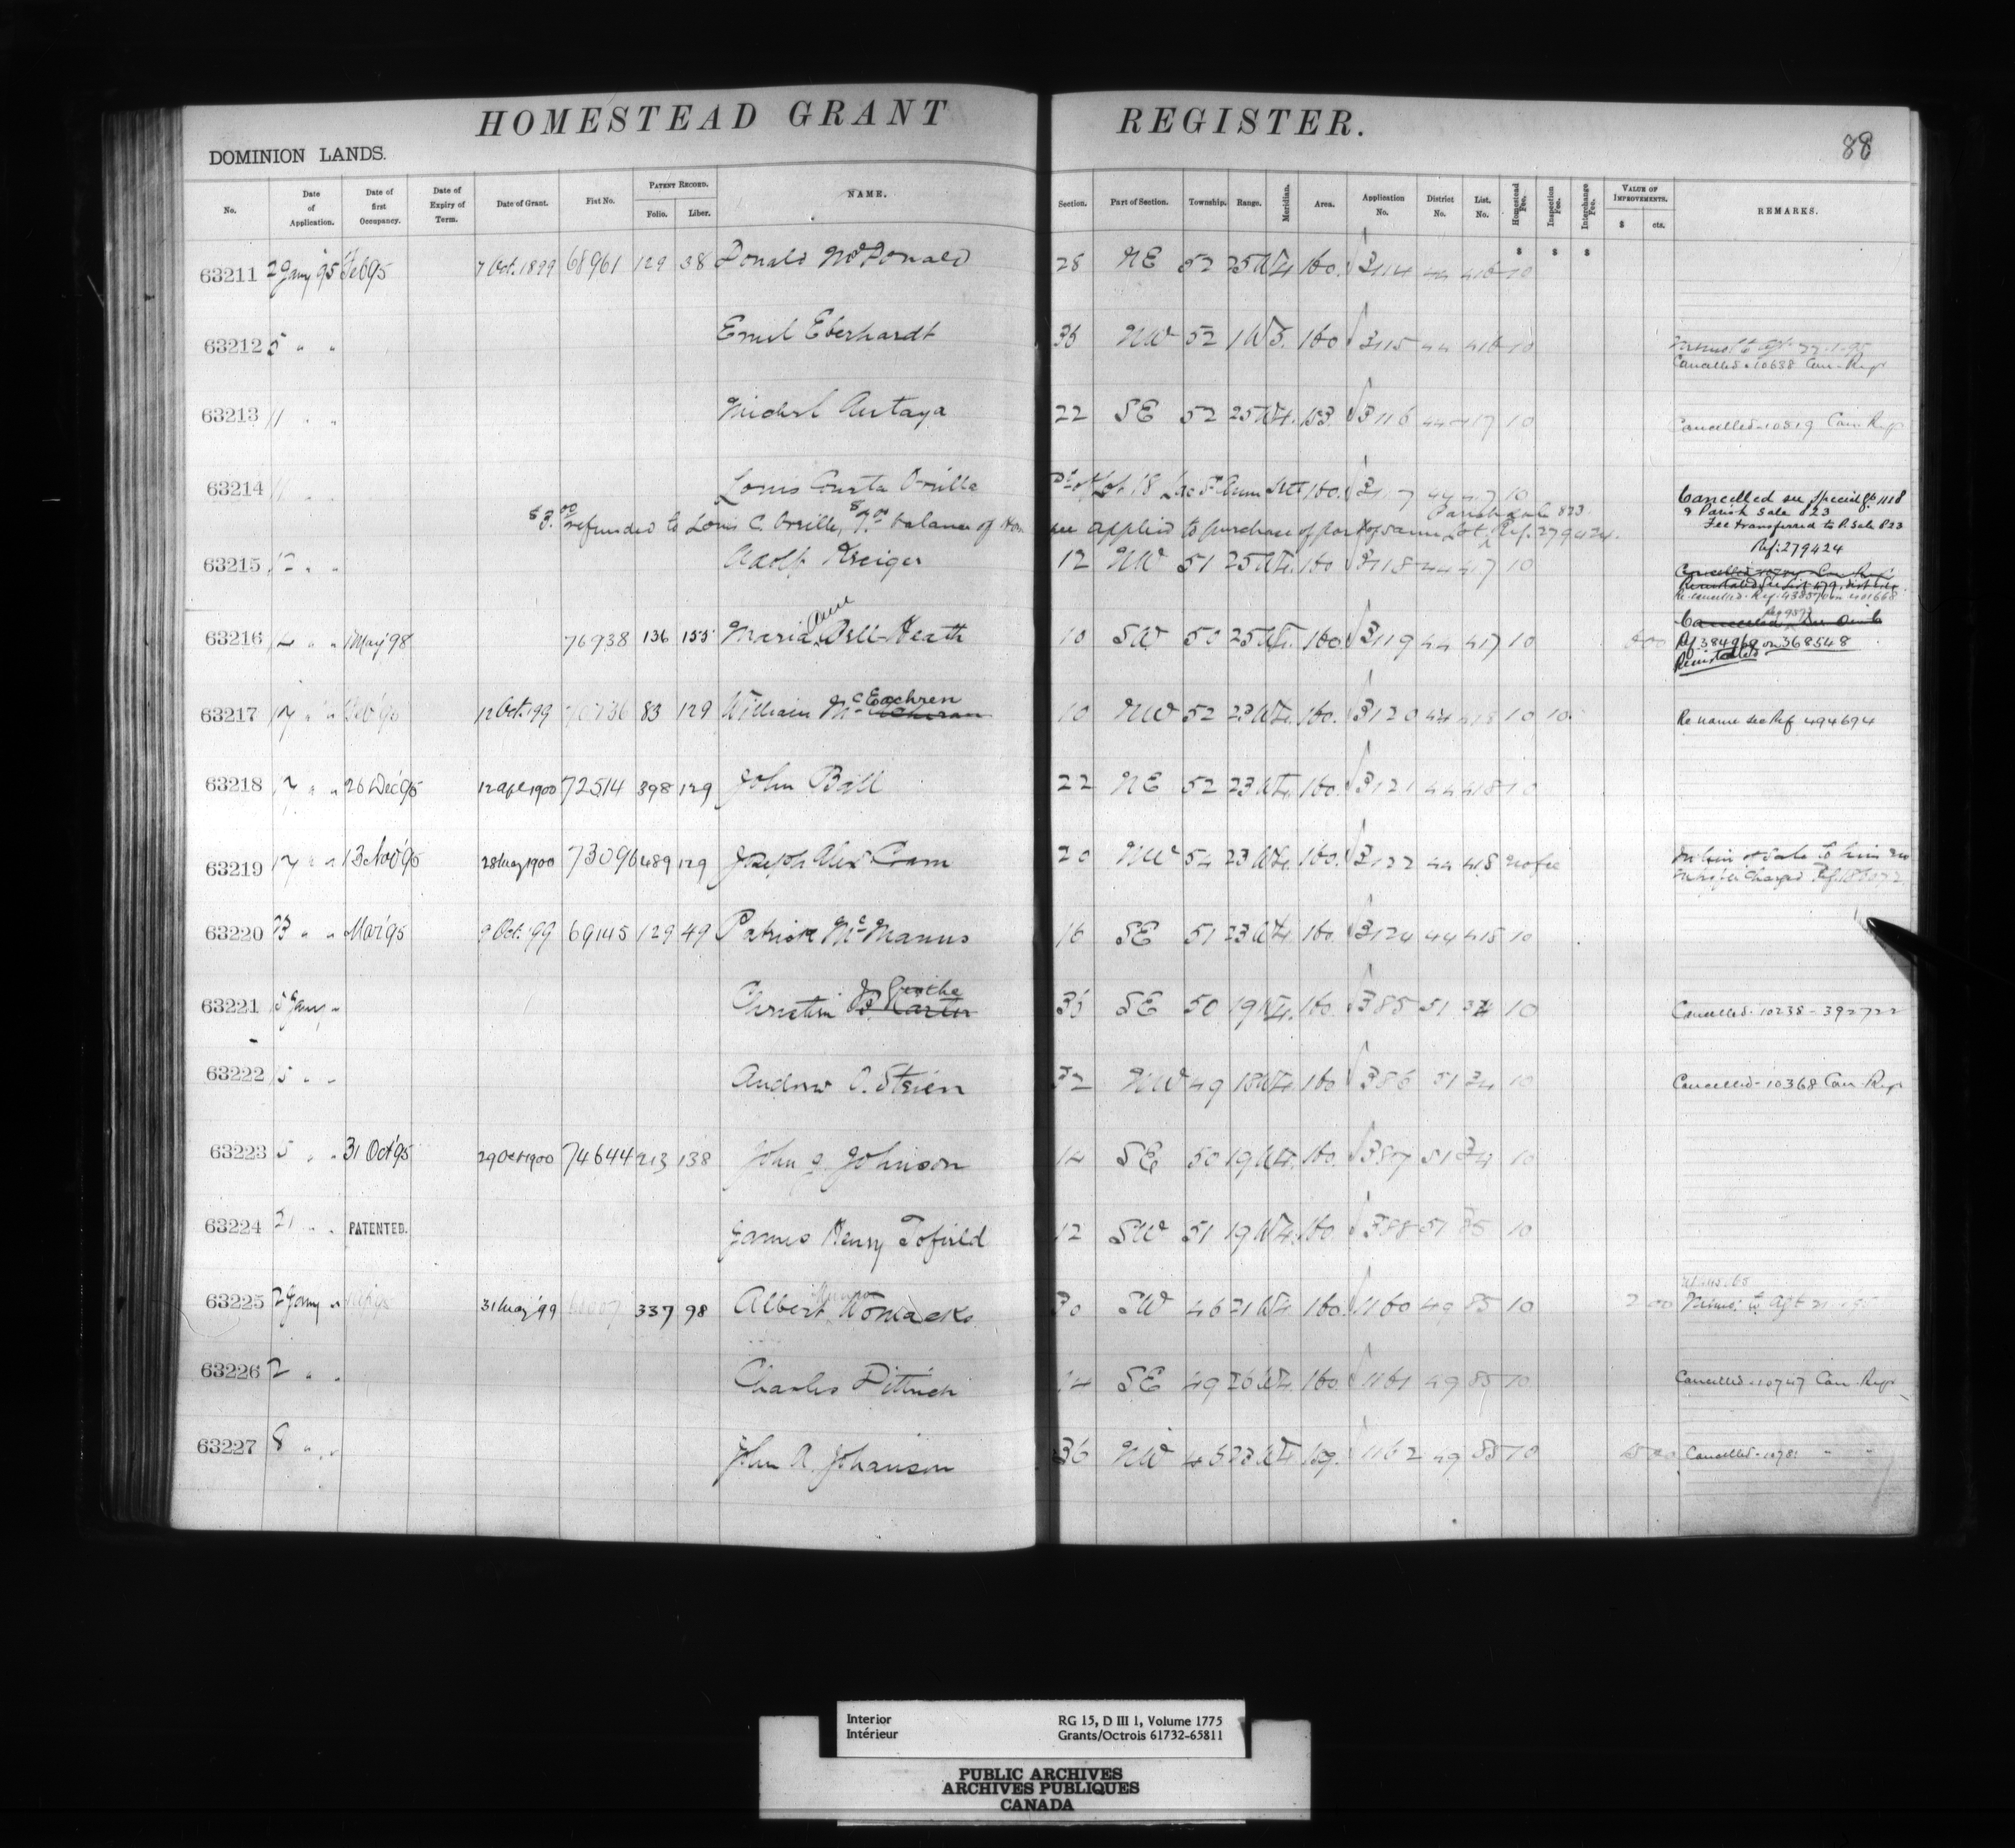 HOMESTEAD GRANT REGISTER.
88
DOMINION LANDS.
No. Date of Application. Date of first Occupancy. Date of Expiry of Term. Date of Grant. Fiat No. PATENT RECORD. Folio. Liber. NAME. Section. Part of Section. Township. Range. Meridian. Area. Application No. District No. List. No. Homestead Fee. Inspection Fee. Interchange Fee. VALUE OF IMPROVEMENTS. $ cts. REMARKS.
$ $ $
63211 2 Jany '95 Feb 95 7 Oct. 1899 68961 129 38 Donald McDonald 28 NE 52 25 W4. 160. 3114 44 416 10
63212 5 " " Emil Eberhardt 36 NW 52 1 W5. 160 3115 44 416 10
Cancelled - 10688 Can. Regr
63213 11 " " Michel Autaya 22 SE 52 25 W4. 153. 3116 44 417 10 Cancelled - 10819 Can. Regr
63214 11 " " Louis Orville Lot 18 160. 3117 44 417 10 Cancelled see Special Gt 1118
& Parish Sale 823
Fee transferred to P. Sale 823
Ref: 279424
Parish Sale 823
$3.00 refunded to Louis C. Orville, $7.00 balance of Hom fee applied to purchase of part of same Lot Ref. 279424.
63215 12 " " Adolf Kreiger 12 NW 51 25 W4. 160 3118 44 417 10
Re-cancelled - Ref. 438570
63216 14 " " 1 May '98 76938 136 155 Maria Bell-Heath 10 SW 50 25 W4. 160 3119 44 417 10
Ref 384968 on 368548
Reinstated
63217 17 " " 12 Oct. '99 83 129 William McEachren 10 NW 52 23 W4. 160. 3120 44 418 10 10 Re name see Ref 494694
63218 17 " " 26 Dec '95 12 Apl 1900 72514 398 129 John Ball 22 NE 52 23 W4. 160. 3121 44 418 10
63219 17 " " 13 Nov '95 28 May 1900 73096 489 129 Joseph Alex Cram 20 NW 54 23 W4. 160. 3122 44 418 no fee
63220 23 " " Mar '95 9 Oct. '99 69145 129 49 Patrick McManus 16 SE 51 23 W4. 160. 3124 44 418 10
63221 5 Jany " Christin 36 SE 50 19 W4. 160. 385 51 34 10 Cancelled - 10238 - 392722
63222 5 " " Andrew O. Strien 32 NW 49 18 W4. 160 386 51 34 10 Cancelled - 10368 Can. Regr
63223 5 " " 31 Oct '95 29 Oct 1900 74644 213 138 John J. Johnson 14 SE 50 19 W4. 160. 387 51 34 10
63224 21 " " PATENTED. James Henry Tofield 12 SW 51 19 W4. 160 388 51 35 10
63225 2 Jany " 31 May '99 337 98 Albert Womacks 30 SW 46 21 W4 160. 1160 49 85 10
63226 2 " " Charles Dittrich 14 SE 49 26 W4. 160. 1161 49 85 10 Cancelled - 10747 Can. Regr
63227 8 " " John A. Johanson 36 NW 46 23 W4 159. 1162 49 85 10 Cancelled - 10781 " "
Interior RG 15, D III 1, Volume 1775
Intérieur Grants/Octrois 61732-65811
PUBLIC ARCHIVES
ARCHIVES PUBLIQUES
CANADA